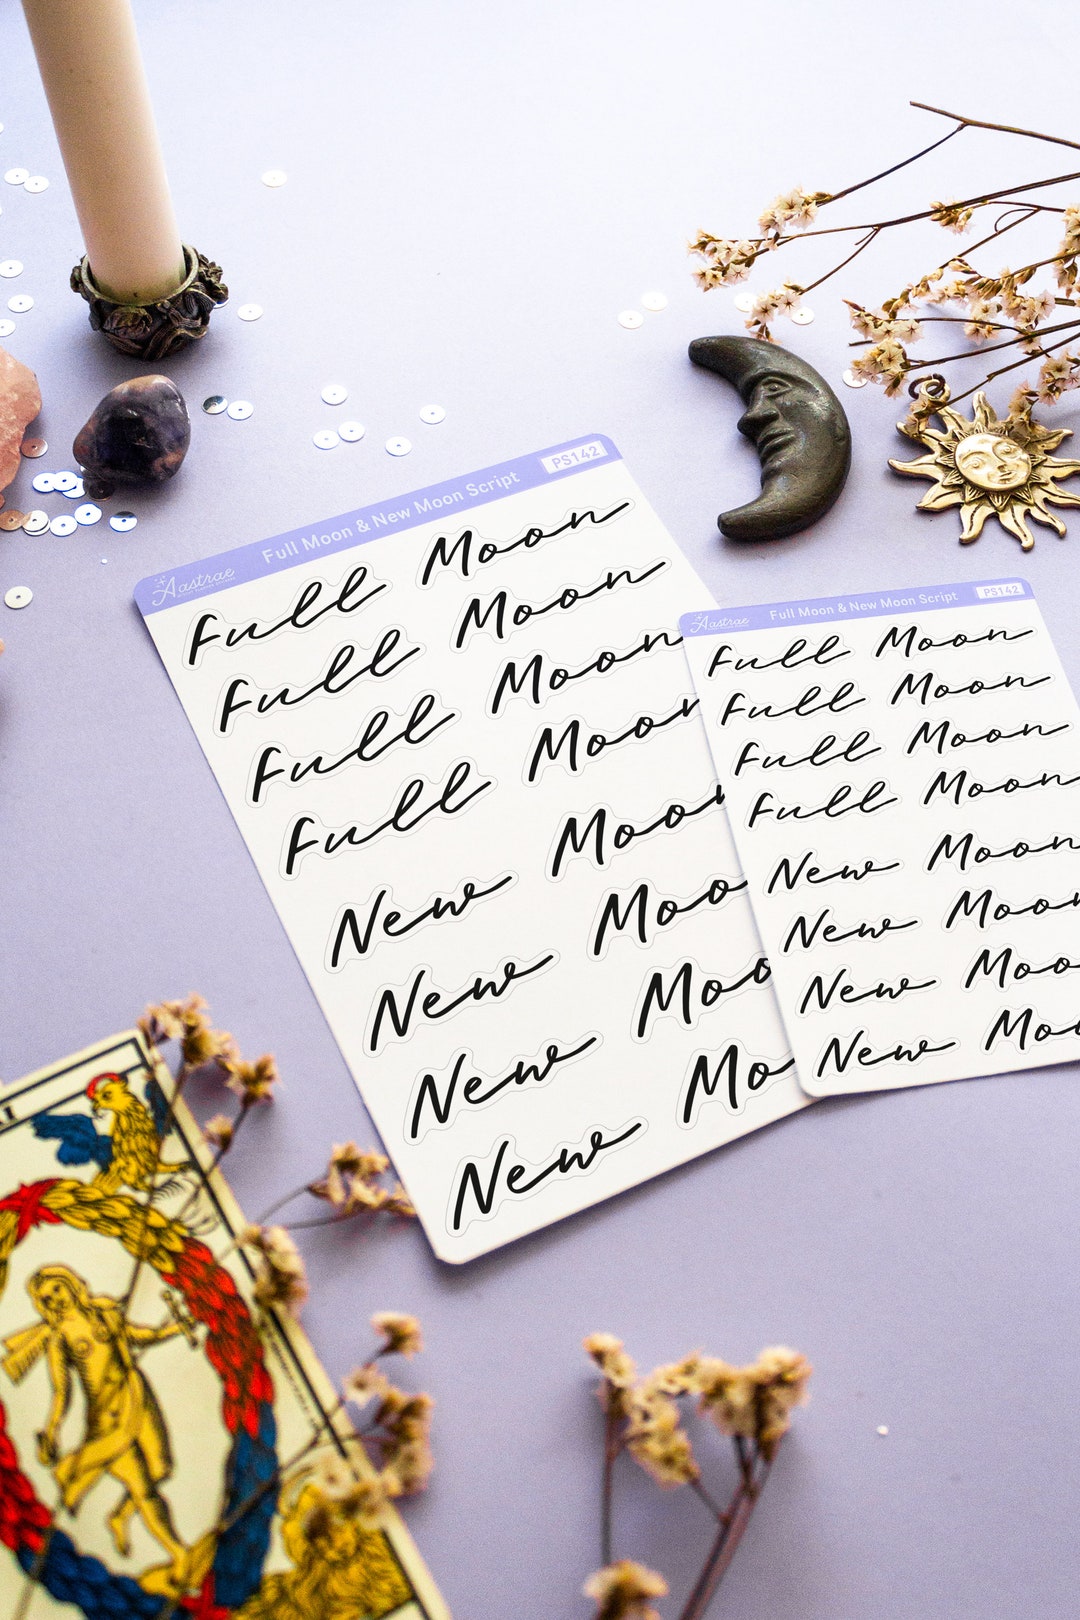 Full Moon & New Moon Script PS142
Aastrae
Full Moon
Full Moon
Full Moon
Full Moon
New Moon
New Moo
New Moo
New Mo
Full Moon & New Moon Script PS142
Aastrae
Full Moon
Full Moon
Full Moon
Full Moon
New Moon
New Moon
New Moo
New Moo